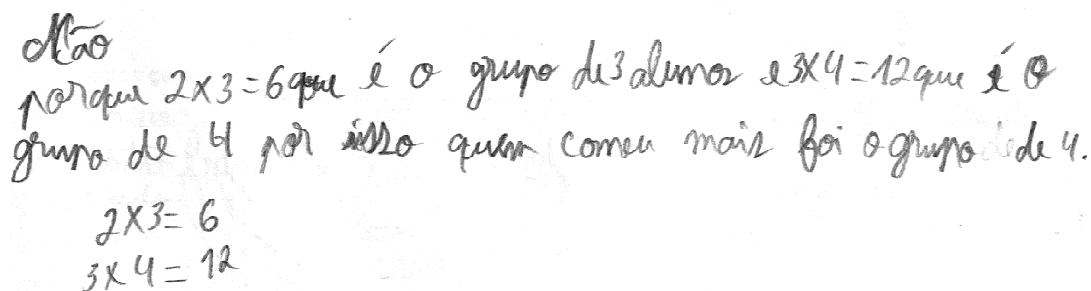 Não
porque 2x3=6 que é o grupo de 3 alunos e 3x4=12 que é o
grupo de 4 por isso quem comeu mais foi o grupo de 4.
2x3=6
3x4=12